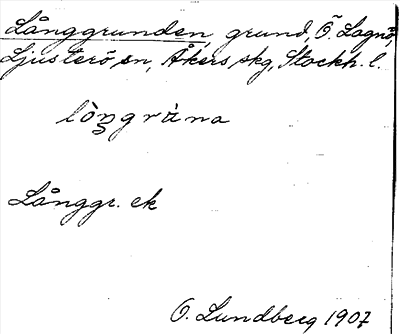 Långgrunden, grund, Ö. Lagnö,
Ljusterö sn, Åkers skg, Stockh. l.
Långgr. ek
O. Lundberg 1907